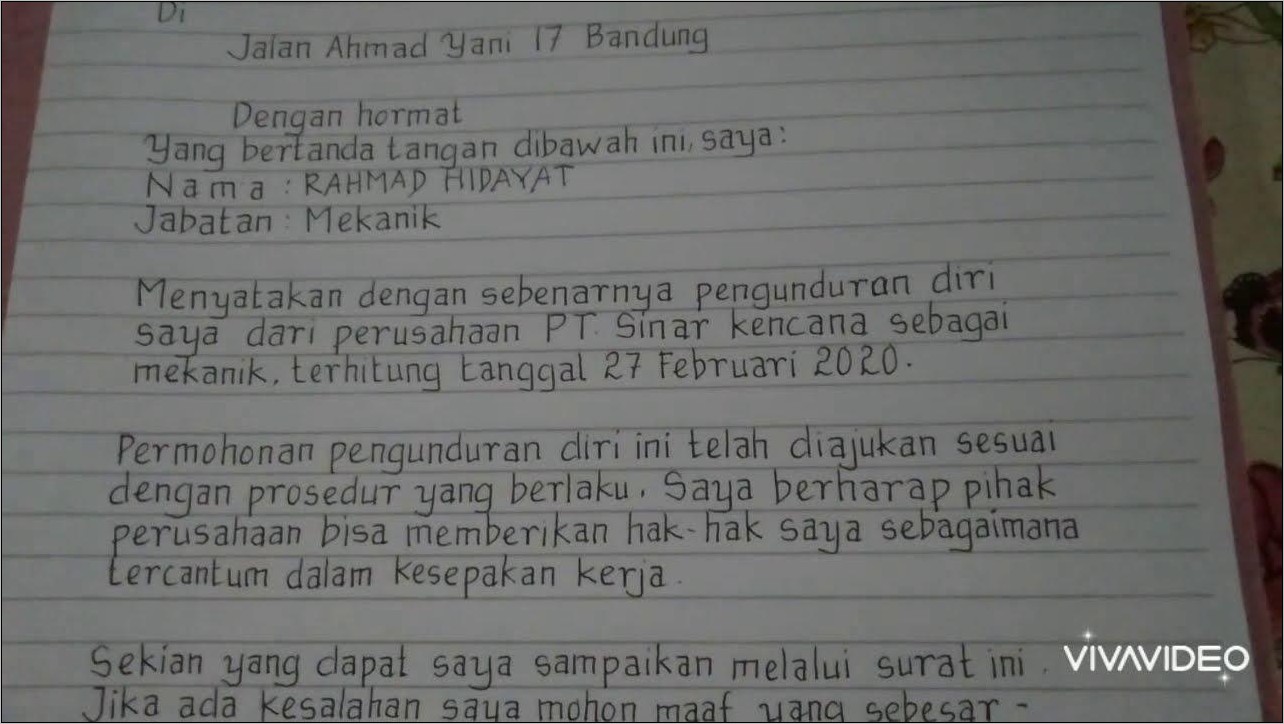 Di
Jalan Ahmad Yani 17 Bandung
Dengan hormat
Yang bertanda tangan dibawah ini, saya:
Nama : RAHMAD HIDAYAT
Jabatan : Mekanik
Menyatakan dengan sebenarnya pengunduran diri
saya dari perusahaan PT. Sinar kencana sebagai
mekanik, terhitung tanggal 27 Februari 2020.
Permohonan pengunduran diri ini telah diajukan sesuai
dengan prosedur yang berlaku. Saya berharap pihak
perusahaan bisa memberikan hak-hak saya sebagaimana
tercantum dalam kesepakan kerja.
Sekian yang dapat saya sampaikan melalui surat ini.
Jika ada kesalahan saya mohon maaf yang sebesar-
VIVAVIDEO